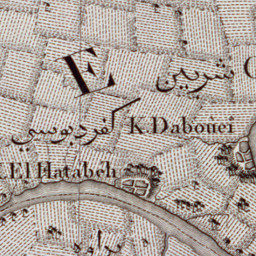 E
شربين
C
كفر دبوسي
K. Daboûci
El Hatabéh